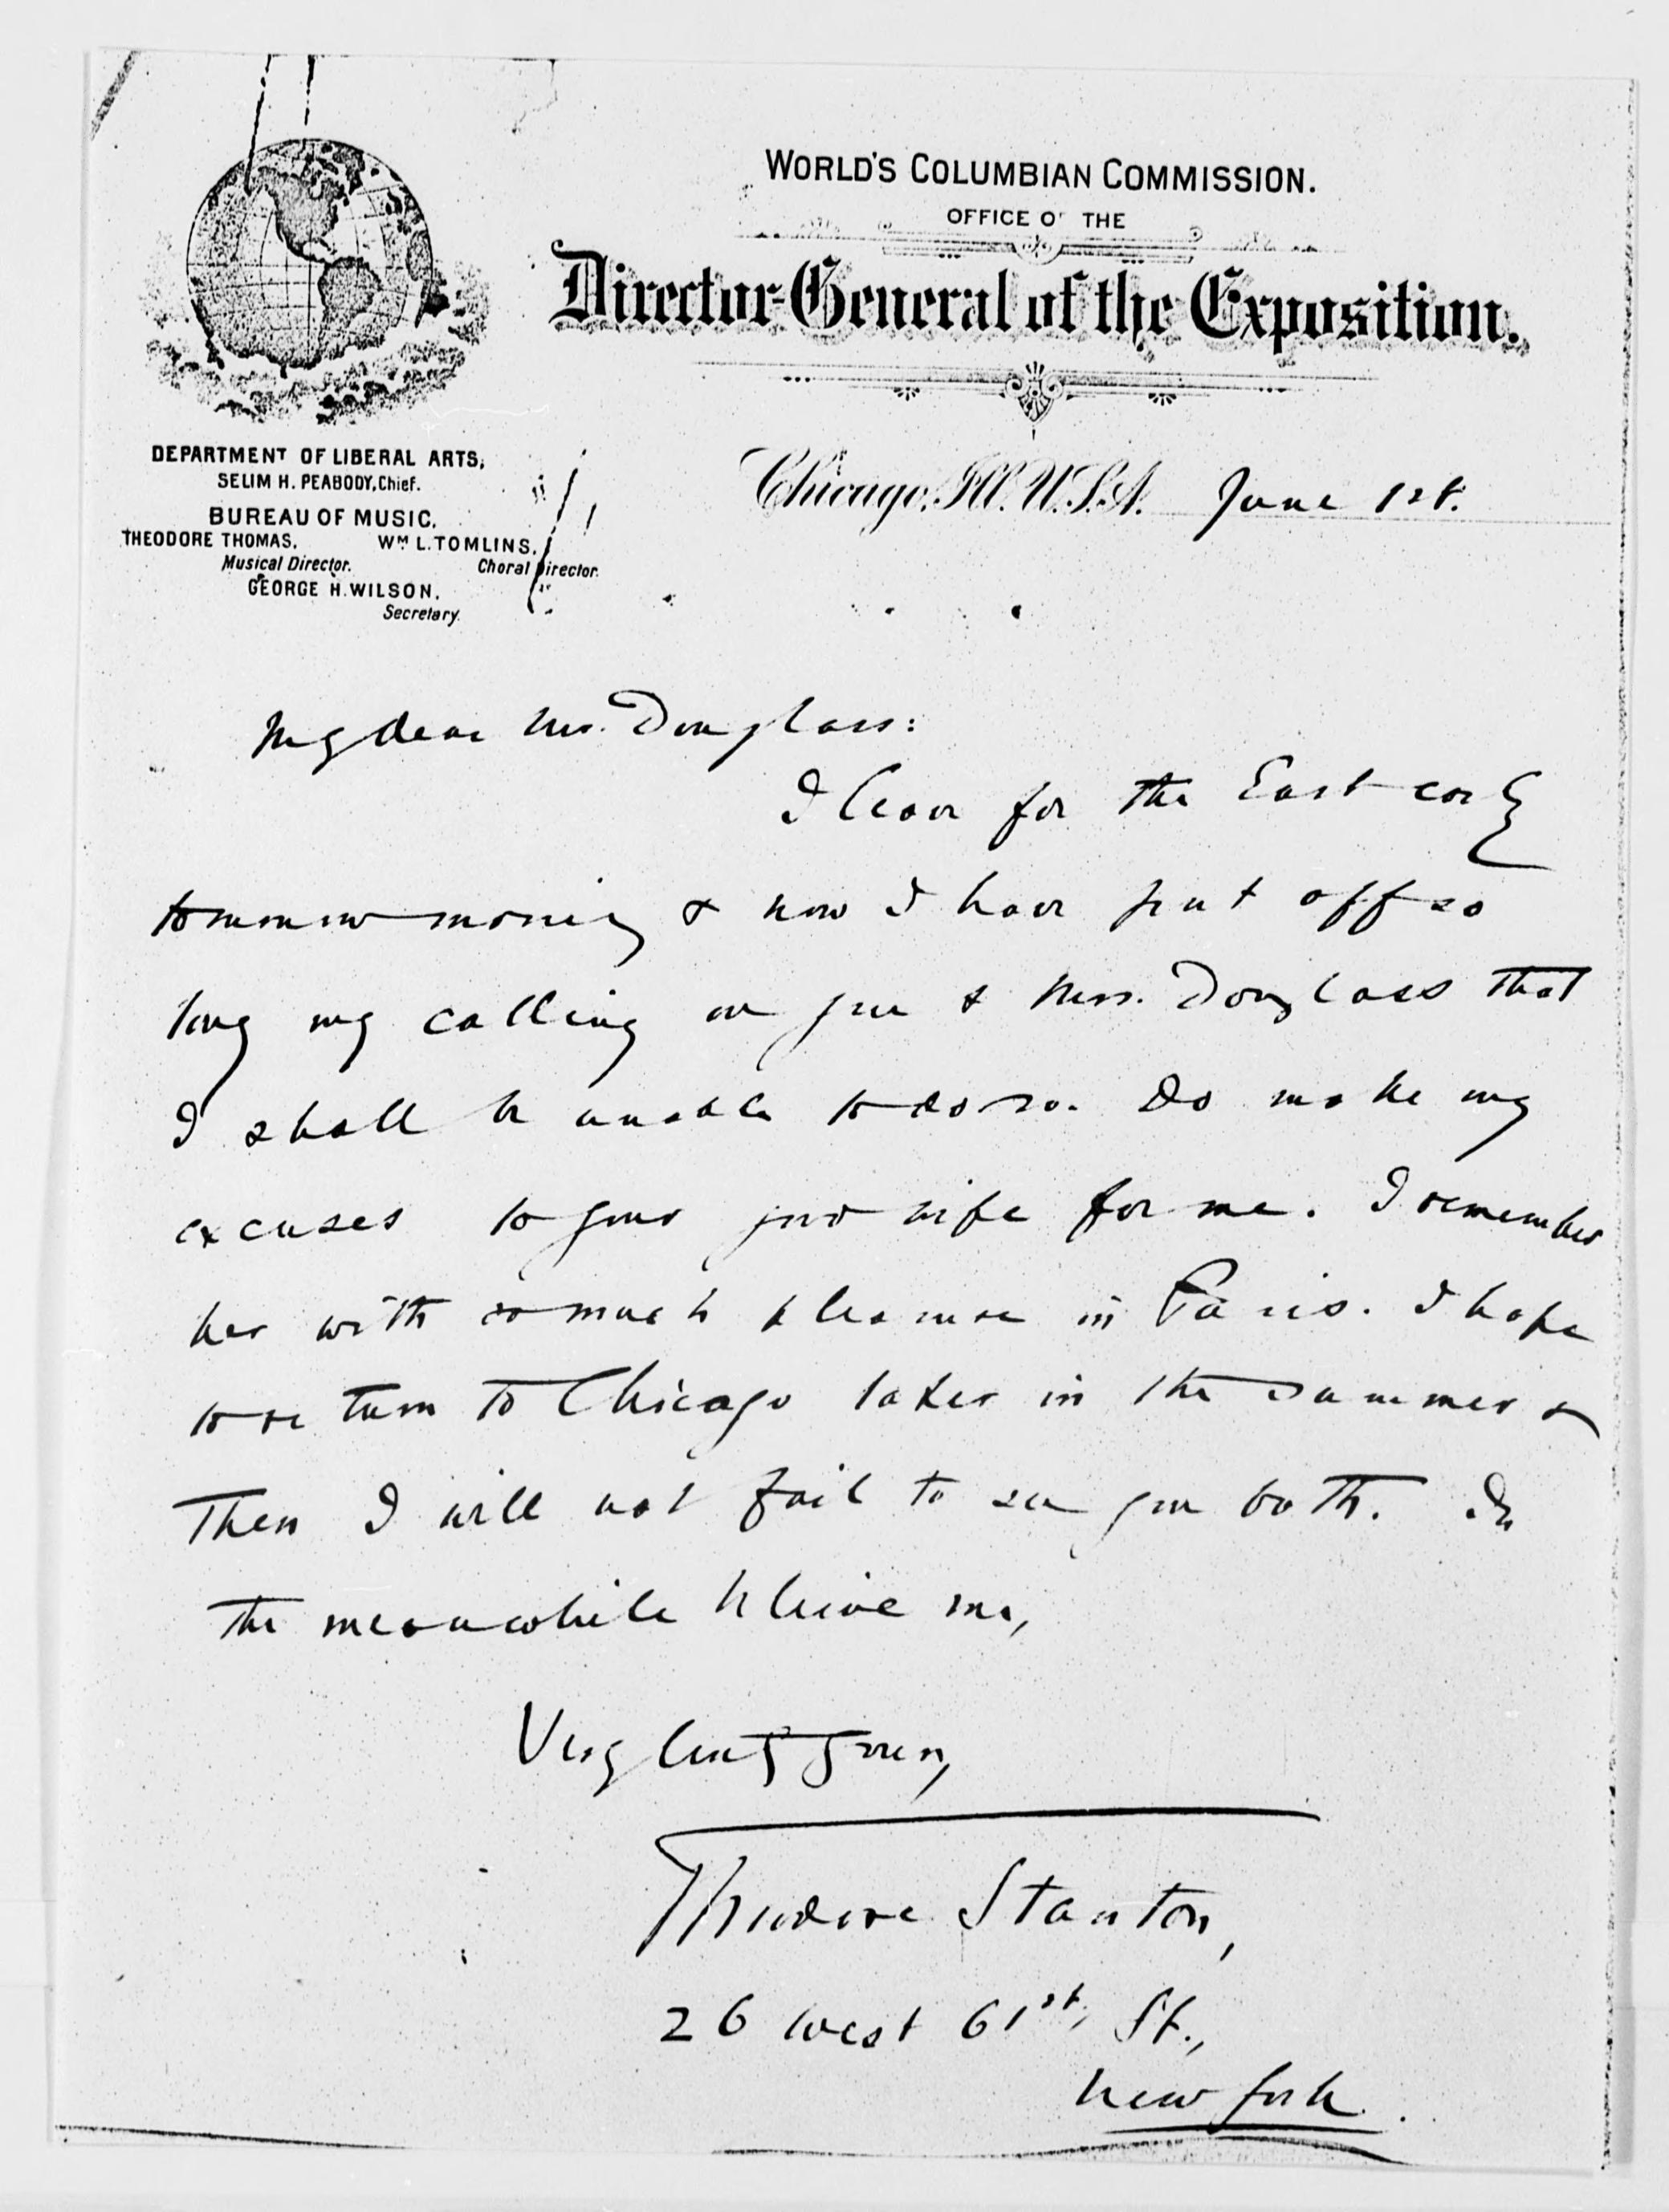 WORLD'S COLUMBIAN COMMISSION.
OFFICE OF THE
Director-General of the Exposition.
DEPARTMENT OF LIBERAL ARTS,
SELIM H. PEABODY, Chief.
BUREAU OF MUSIC.
THEODORE THOMAS, WM L. TOMLINS,
Musical Director. Choral Director.
GEORGE H. WILSON,
Secretary.
Chicago, Ill. U.S.A. June 1st.
My dear Mr. Douglass:
I leave for the East early
tomorrow morning & now I have put off so
long my calling on you & Mrs. Douglass that
I shall be unable to do so. Do make my
excuses to your good wife for me. I remember
her with so much pleasure in Paris. I hope
to return to Chicago later in the summer &
then I will not fail to see you both. In
the meanwhile believe me,
Very truly yours,
Theodore Stanton,
26 West 61st, St.,
New York.